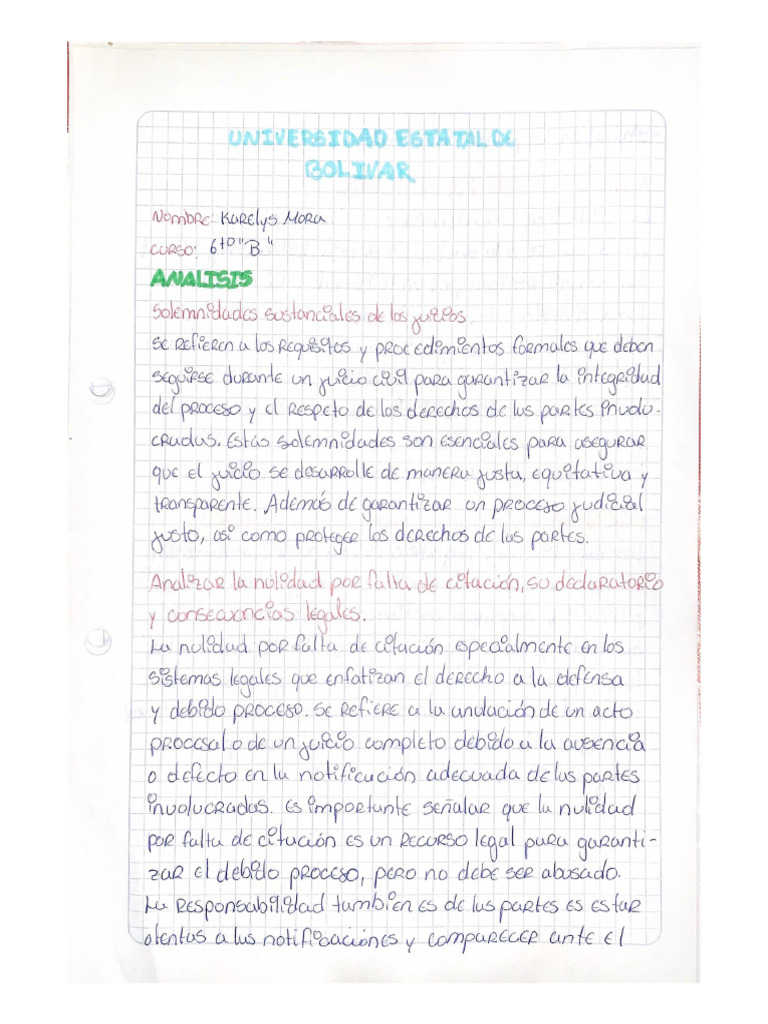 UNIVERSIDAD ESTATAL DE
BOLIVAR
Nombre: Karelys Mora
CURSO: 6to "B"
ANALISIS
Solemnidades sustanciales de los juicios
Se refieren a los requisitos y procedimientos formales que deben
seguirse durante un juicio civil para garantizar la integridad
del proceso y el respeto de los derechos de las partes involu-
cradas. Estás solemnidades son esenciales para asegurar
que el juicio se desarrolle de manera justa, equitativa y
transparente. Además de garantizar un proceso judicial
justo, así como proteger los derechos de las partes.
Analizar la nulidad por falta de citación, su declaratorio
y consecuencias legales.
La nulidad por falta de citación especialmente en los
sistemas legales que enfatizan el derecho a la defensa
y debido proceso. Se refiere a la anulación de un acto
procesal o de un juicio completo debido a la ausencia
o defecto en la notificación adecuada de las partes
involucradas. Es importante señalar que la nulidad
por falta de citación es un recurso legal para garanti-
zar el debido proceso, pero no debe ser abusado.
La responsabilidad tambien es de las partes es estar
atentas a las notificaciónes y comparecer ante el